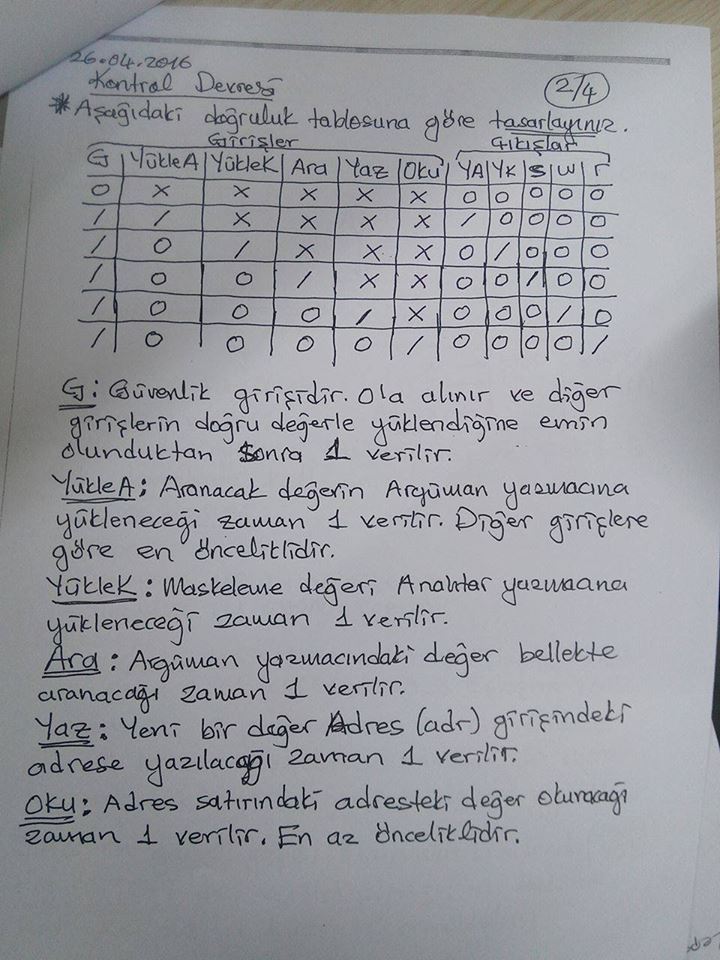 26.04.2016
Kontrol Devresi
2/4
* Aşağıdaki doğruluk tablosuna göre tasarlayınız.
Girişler Çıkışlar
G YükleA YükleK Ara Yaz Oku YA YK S W r
0 x x x x x 0 0 0 0 0
1 1 x x x x 1 0 0 0 0
1 0 1 x x x 0 1 0 0 0
1 0 0 1 x x 0 0 1 0 0
1 0 0 0 1 x 0 0 0 1 0
1 0 0 0 0 1 0 0 0 0 1
G: Güvenlik girişidir. 0'a alınır ve diğer
girişlerin doğru değerle yüklendiğine emin
olunduktan sonra 1 verilir.
YükleA: Aranacak değerin Argüman yazmacına
yükleneceği zaman 1 verilir. Diğer girişlere
göre en önceliklidir.
YükleK: Maskeleme değeri Anahtar yazmacına
yükleneceği zaman 1 verilir.
Ara: Argüman yazmacındaki değer bellekte
aranacağı zaman 1 verilir.
Yaz: Yeni bir değer Adres (adr) girişindeki
adrese yazılacağı zaman 1 verilir.
Oku: Adres satırındaki adresteki değer okunacağı
zaman 1 verilir. En az önceliklidir.